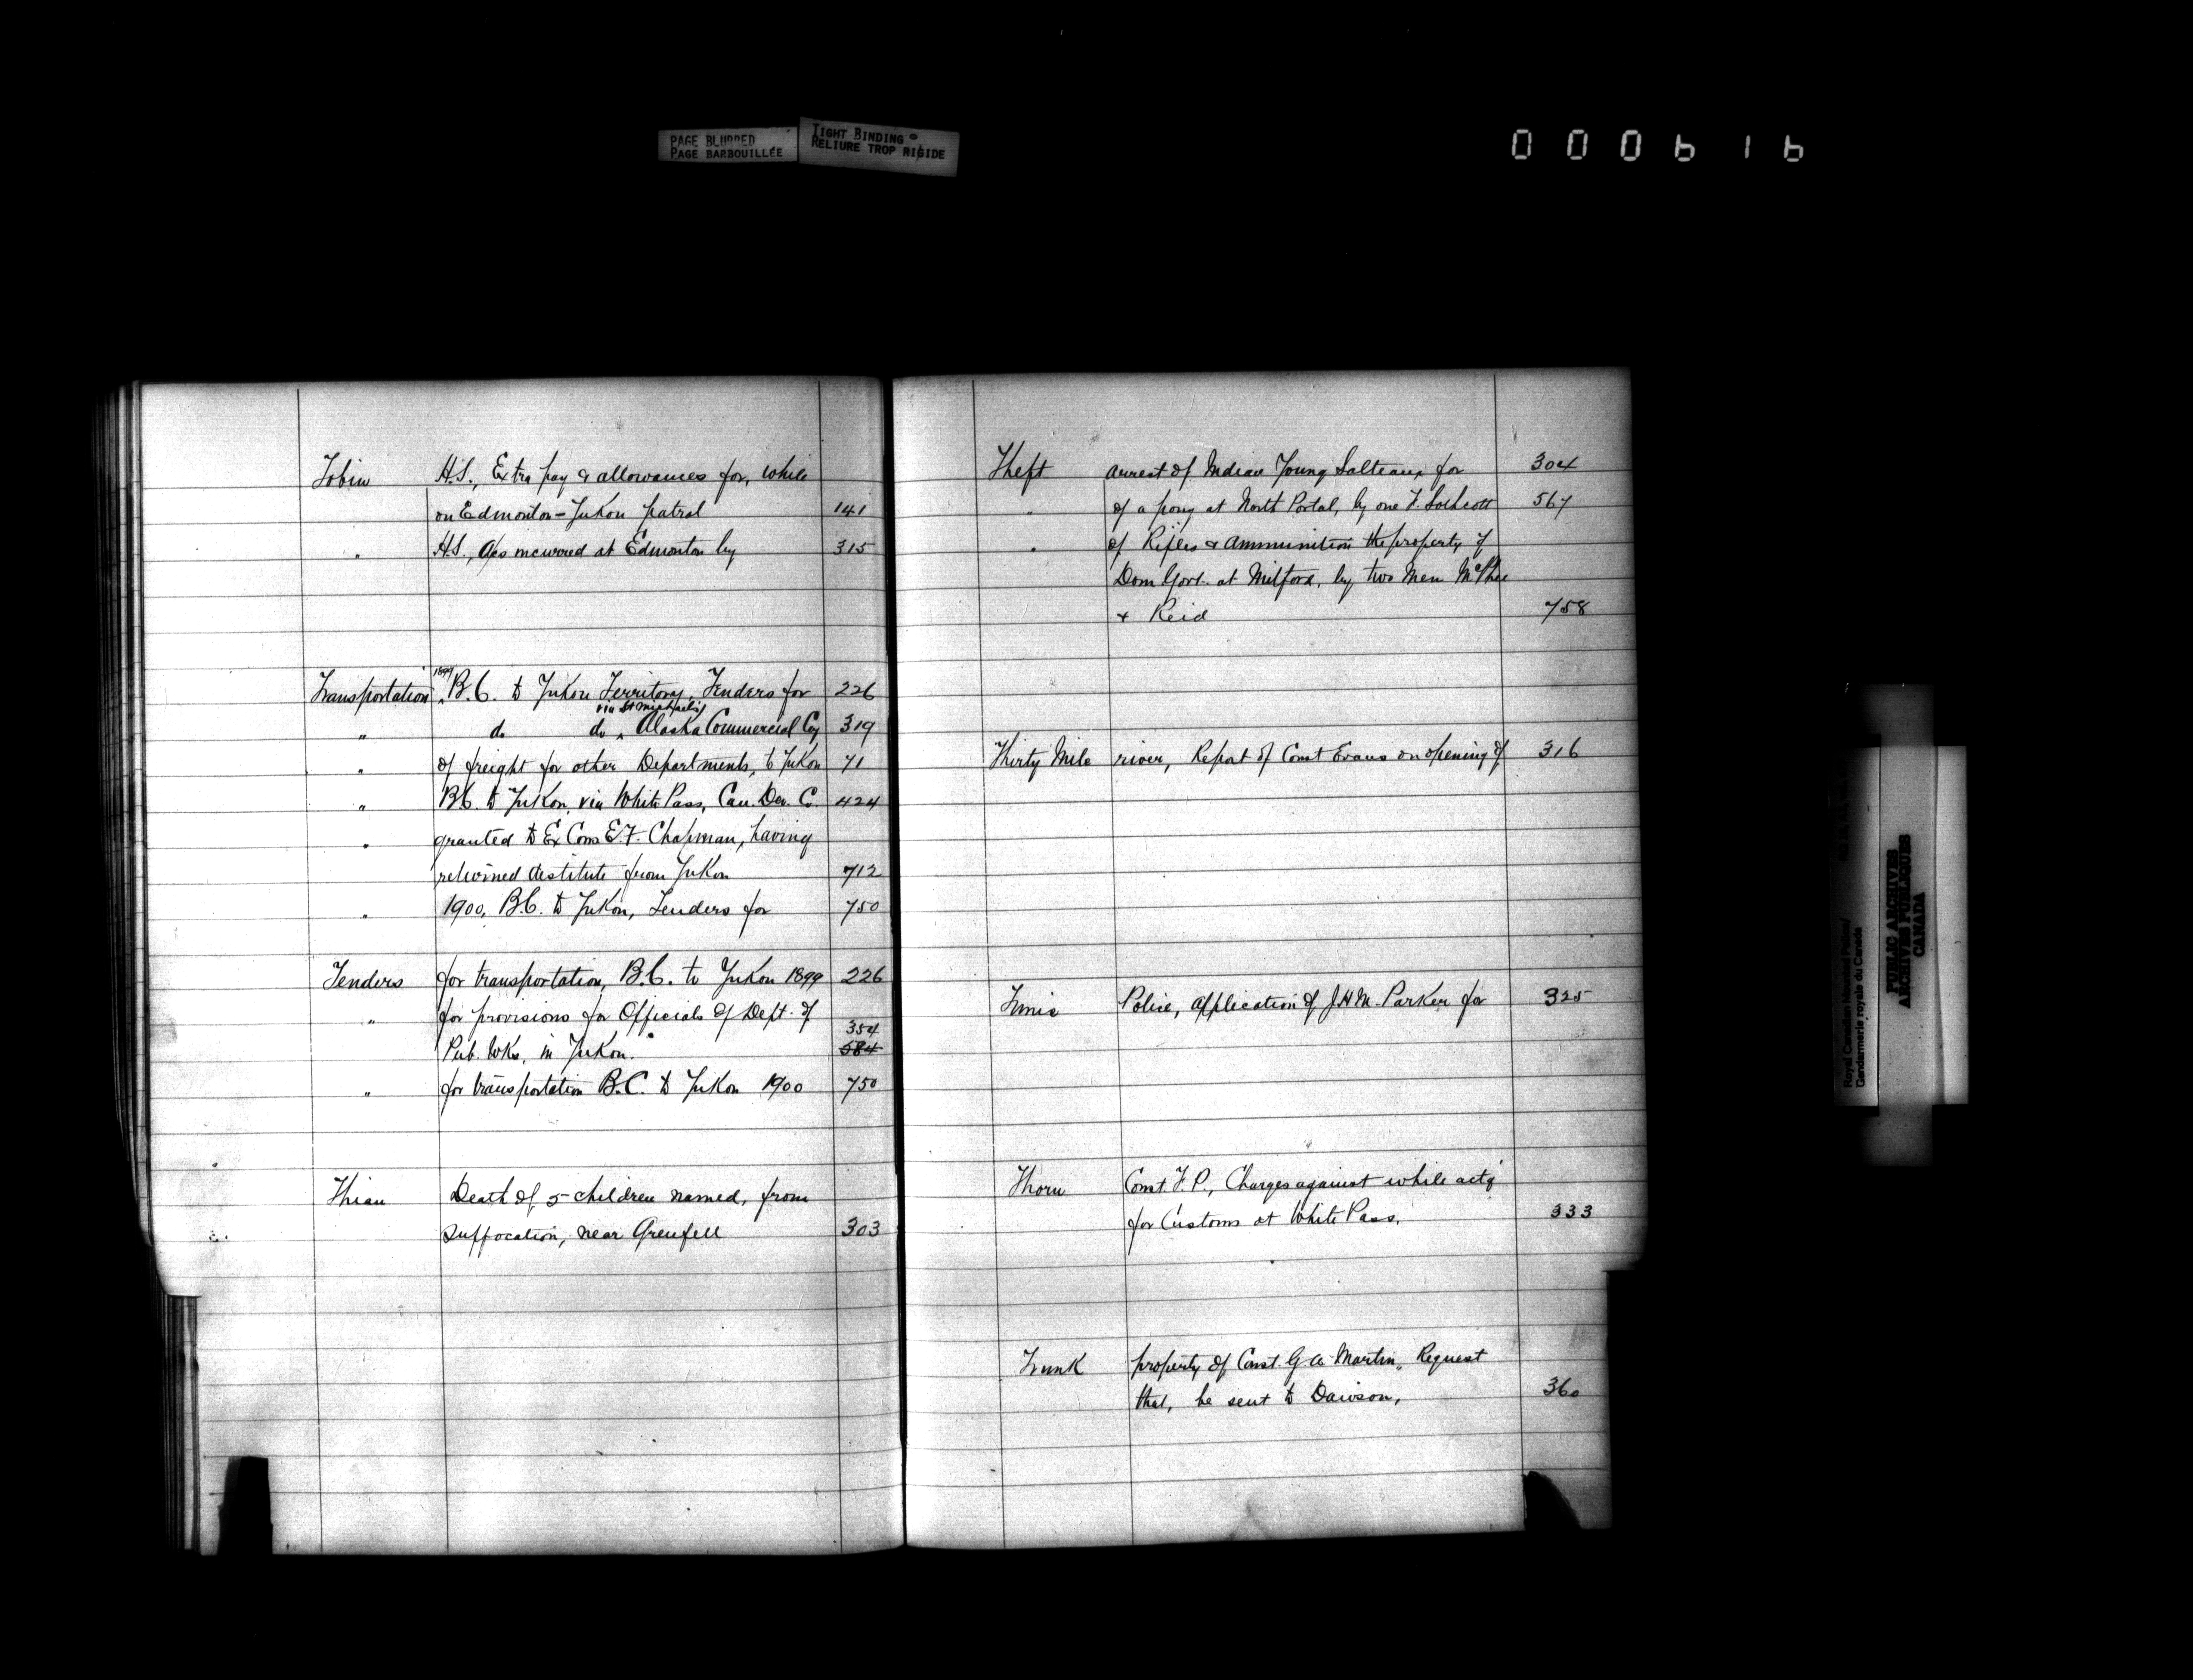 PAGE BLURRED
PAGE BARBOUILLÉE
TIGHT BINDING
RELIURE TROP RIGIDE
000616
Tobin H.S., Extra pay & allowances for, while
on Edmonton-Yukon patrol 141
" H.S., a/cs incurred at Edmonton by 315
Transportation 1899 B.C. to Yukon Territory, Tenders for 226
" do do via St Michaels Alaska Commercial Coy 319
" of freight for other Departments, to Yukon 71
" B.C. to Yukon, via White Pass, Can. Dev. C. 424
" granted to Ex Cons E.F. Chapman, having
returned destitute from Yukon 712
" 1900, B.C. to Yukon, Tenders for 750
Tenders for transportation, B.C. to Yukon 1899 226
" for provisions for Officials of Dept. of
354
Pub. Wks, in Yukon. 584
" for transportation B.C. to Yukon 1900 750
Thian Death of 5 children named, from
suffocation, near Grenfell 303
Theft arrest of Indian Young Salteaux for 304
" of a pony at North Portal, by one F. 567
" of Rifles & ammunition the property of
Dom Govt. at Milford, by two men McPhee
& Reid 758
Thirty Mile river, Report of Const Evans on opening of 316
Police, application of J.H.M. Parker for 325
Thorn Const. F.P., Charges against while actg
for Customs at White Pass. 333
Trunk property of Const. G.A. Martin, Request
that, be sent to Dawson, 360
Royal Canadian Mounted Police/
Gendarmerie royale du Canada
PUBLIC ARCHIVES
ARCHIVES PUBLIQUES
CANADA